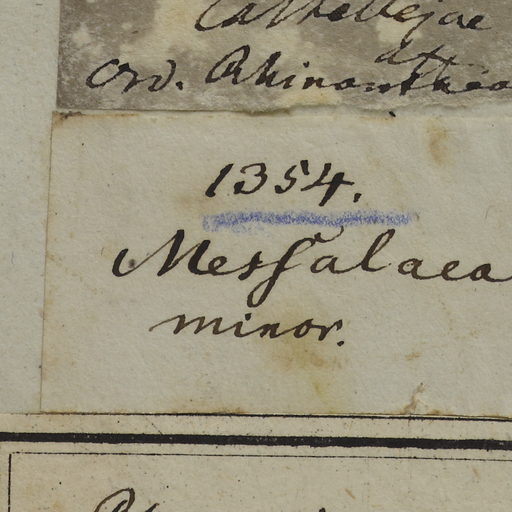 Castellejae
aff
Ord. Rhinantheae
1354.
Messalaea
minor.